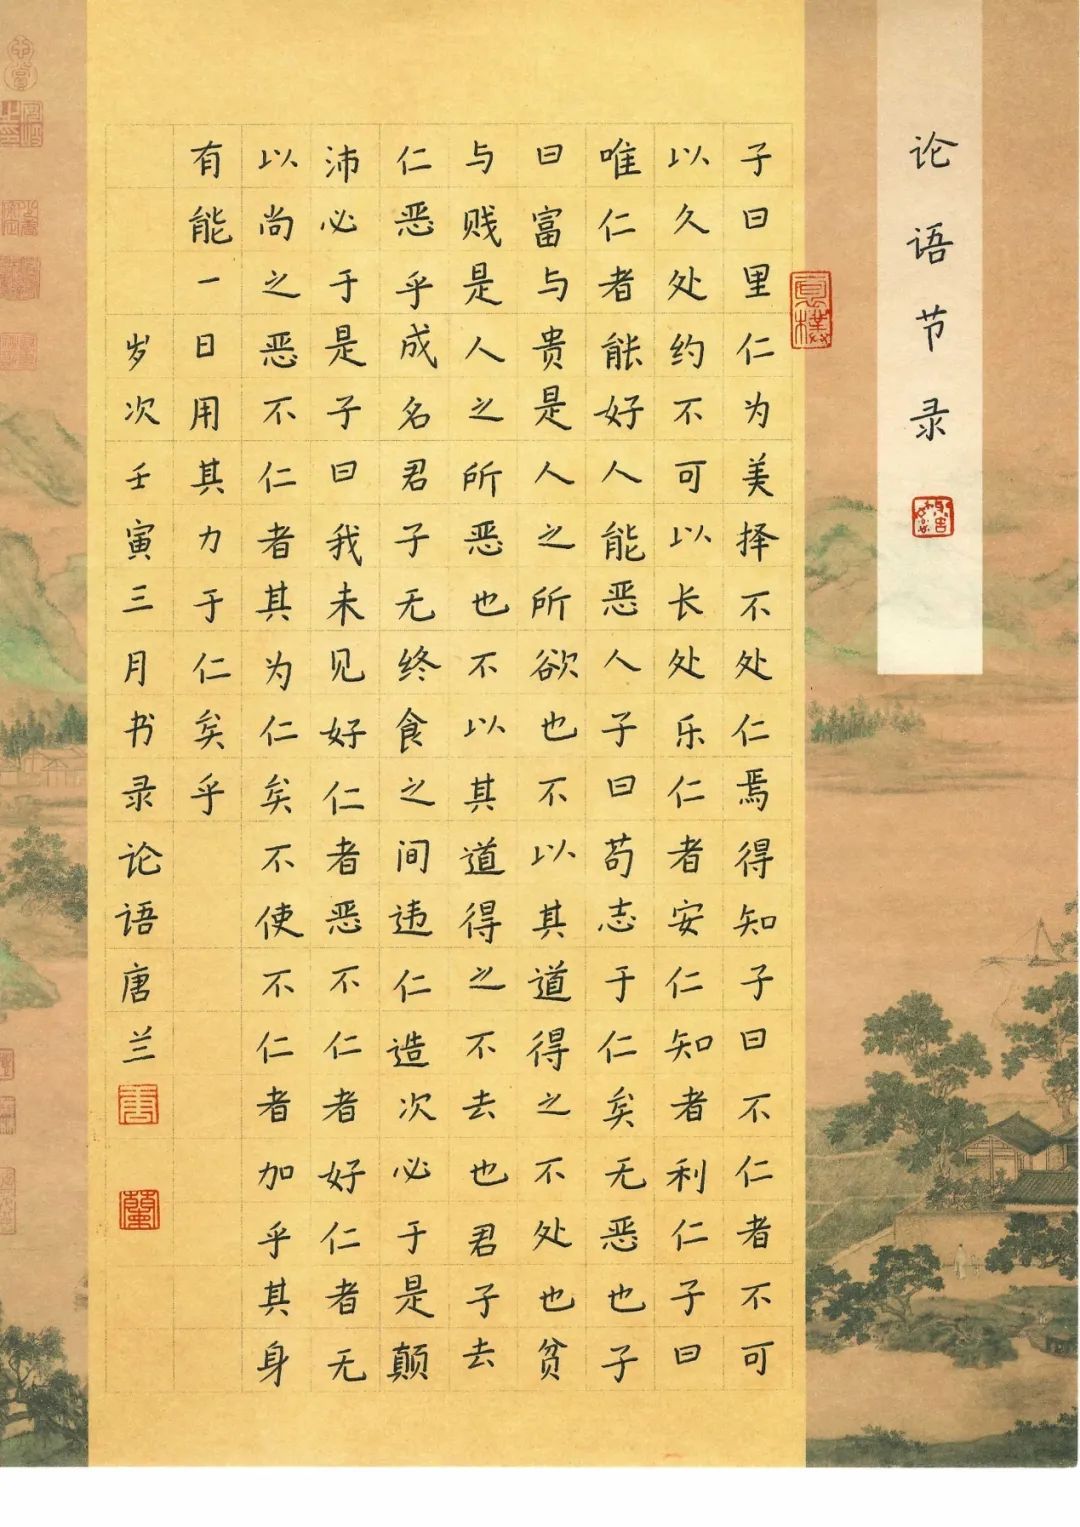 论语节录
子曰里仁为美择不处仁焉得知子曰不仁者不可
以久处约不可以长处乐仁者安仁知者利仁子曰
唯仁者能好人能恶人子曰苟志于仁矣无恶也子
曰富与贵是人之所欲也不以其道得之不处也贫
与贱是人之所恶也不以其道得之不去也君子去
仁恶乎成名君子无终食之间违仁造次必于是颠
沛必于是子曰我未见好仁者恶不仁者好仁者无
以尚之恶不仁者其为仁矣不使不仁者加乎其身
有能一日用其力于仁矣乎
岁次壬寅三月书录论语唐兰